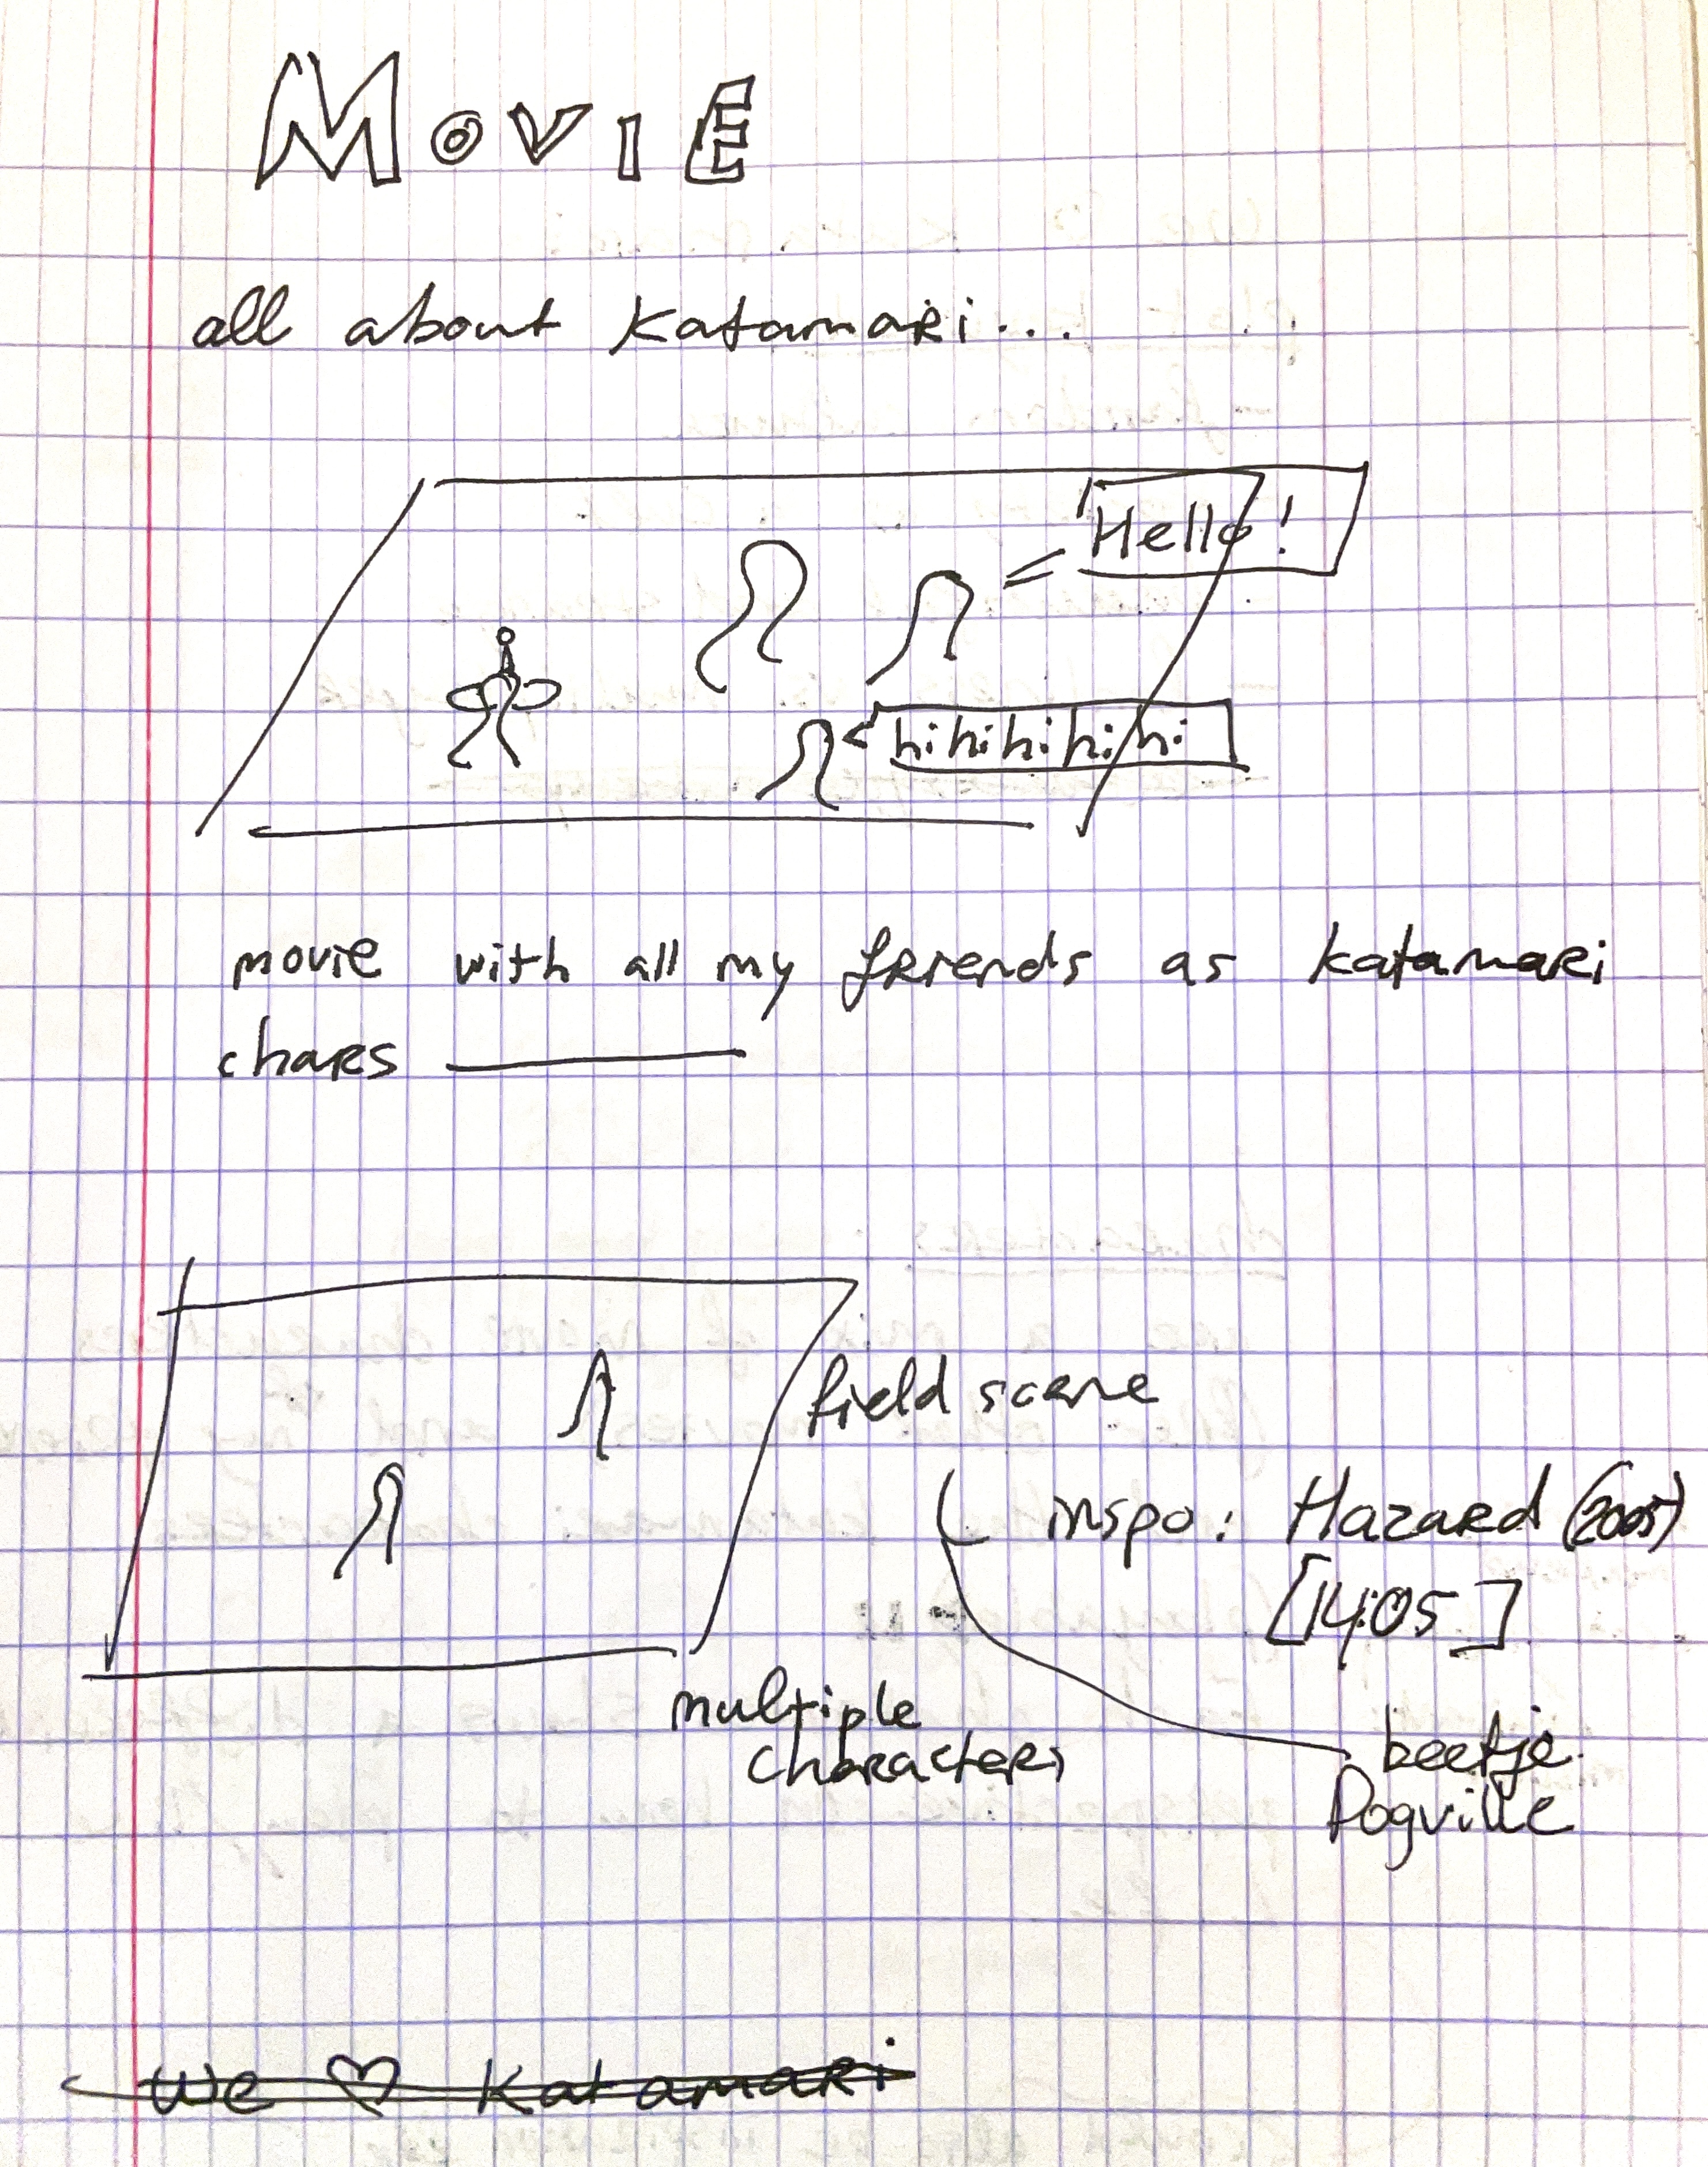 MOVIE
all about Katamari...
Hello!
hihihihihi
movie with all my friends as katamari
chars
field scene
inspo: Hazard (2005)
[14:05]
multiple
characters
beetje
Dogville
We ♡ Katamari